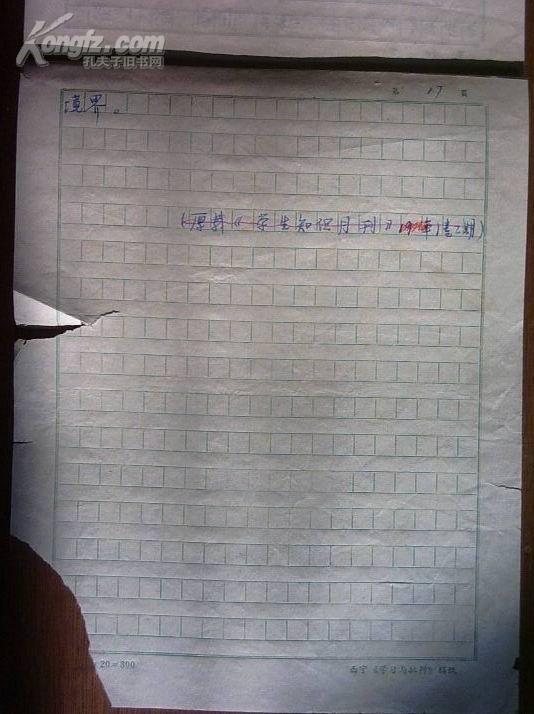 Kongfz.com
孔夫子旧书网
第 17 页
境界。
(原载《学生知识月刊》年第期)
20=300
西宁《学习与批判》稿纸